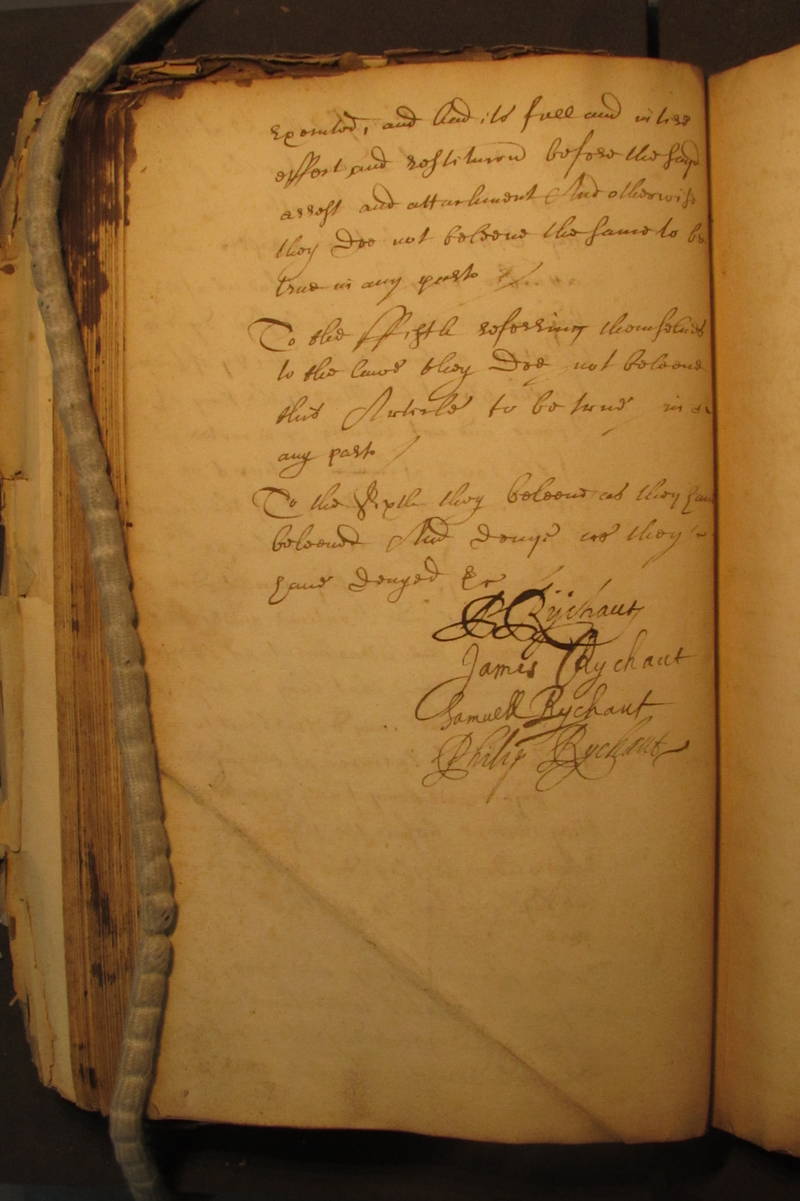 executed, and had its full and intire
effect and restitucion before the sayd
arrest and attachment And otherwise
they doe not beleeve the same to be
true in any parte
To the ffifth referring themselves
to the lawe they doe not beleeve
this Article to be true in
any parte
To the sixth they beleeve as they have
beleeved And denye as they
have denyed &c
Rychaut
James Rychaut
Samuell Rychaut
Philip Rychaut